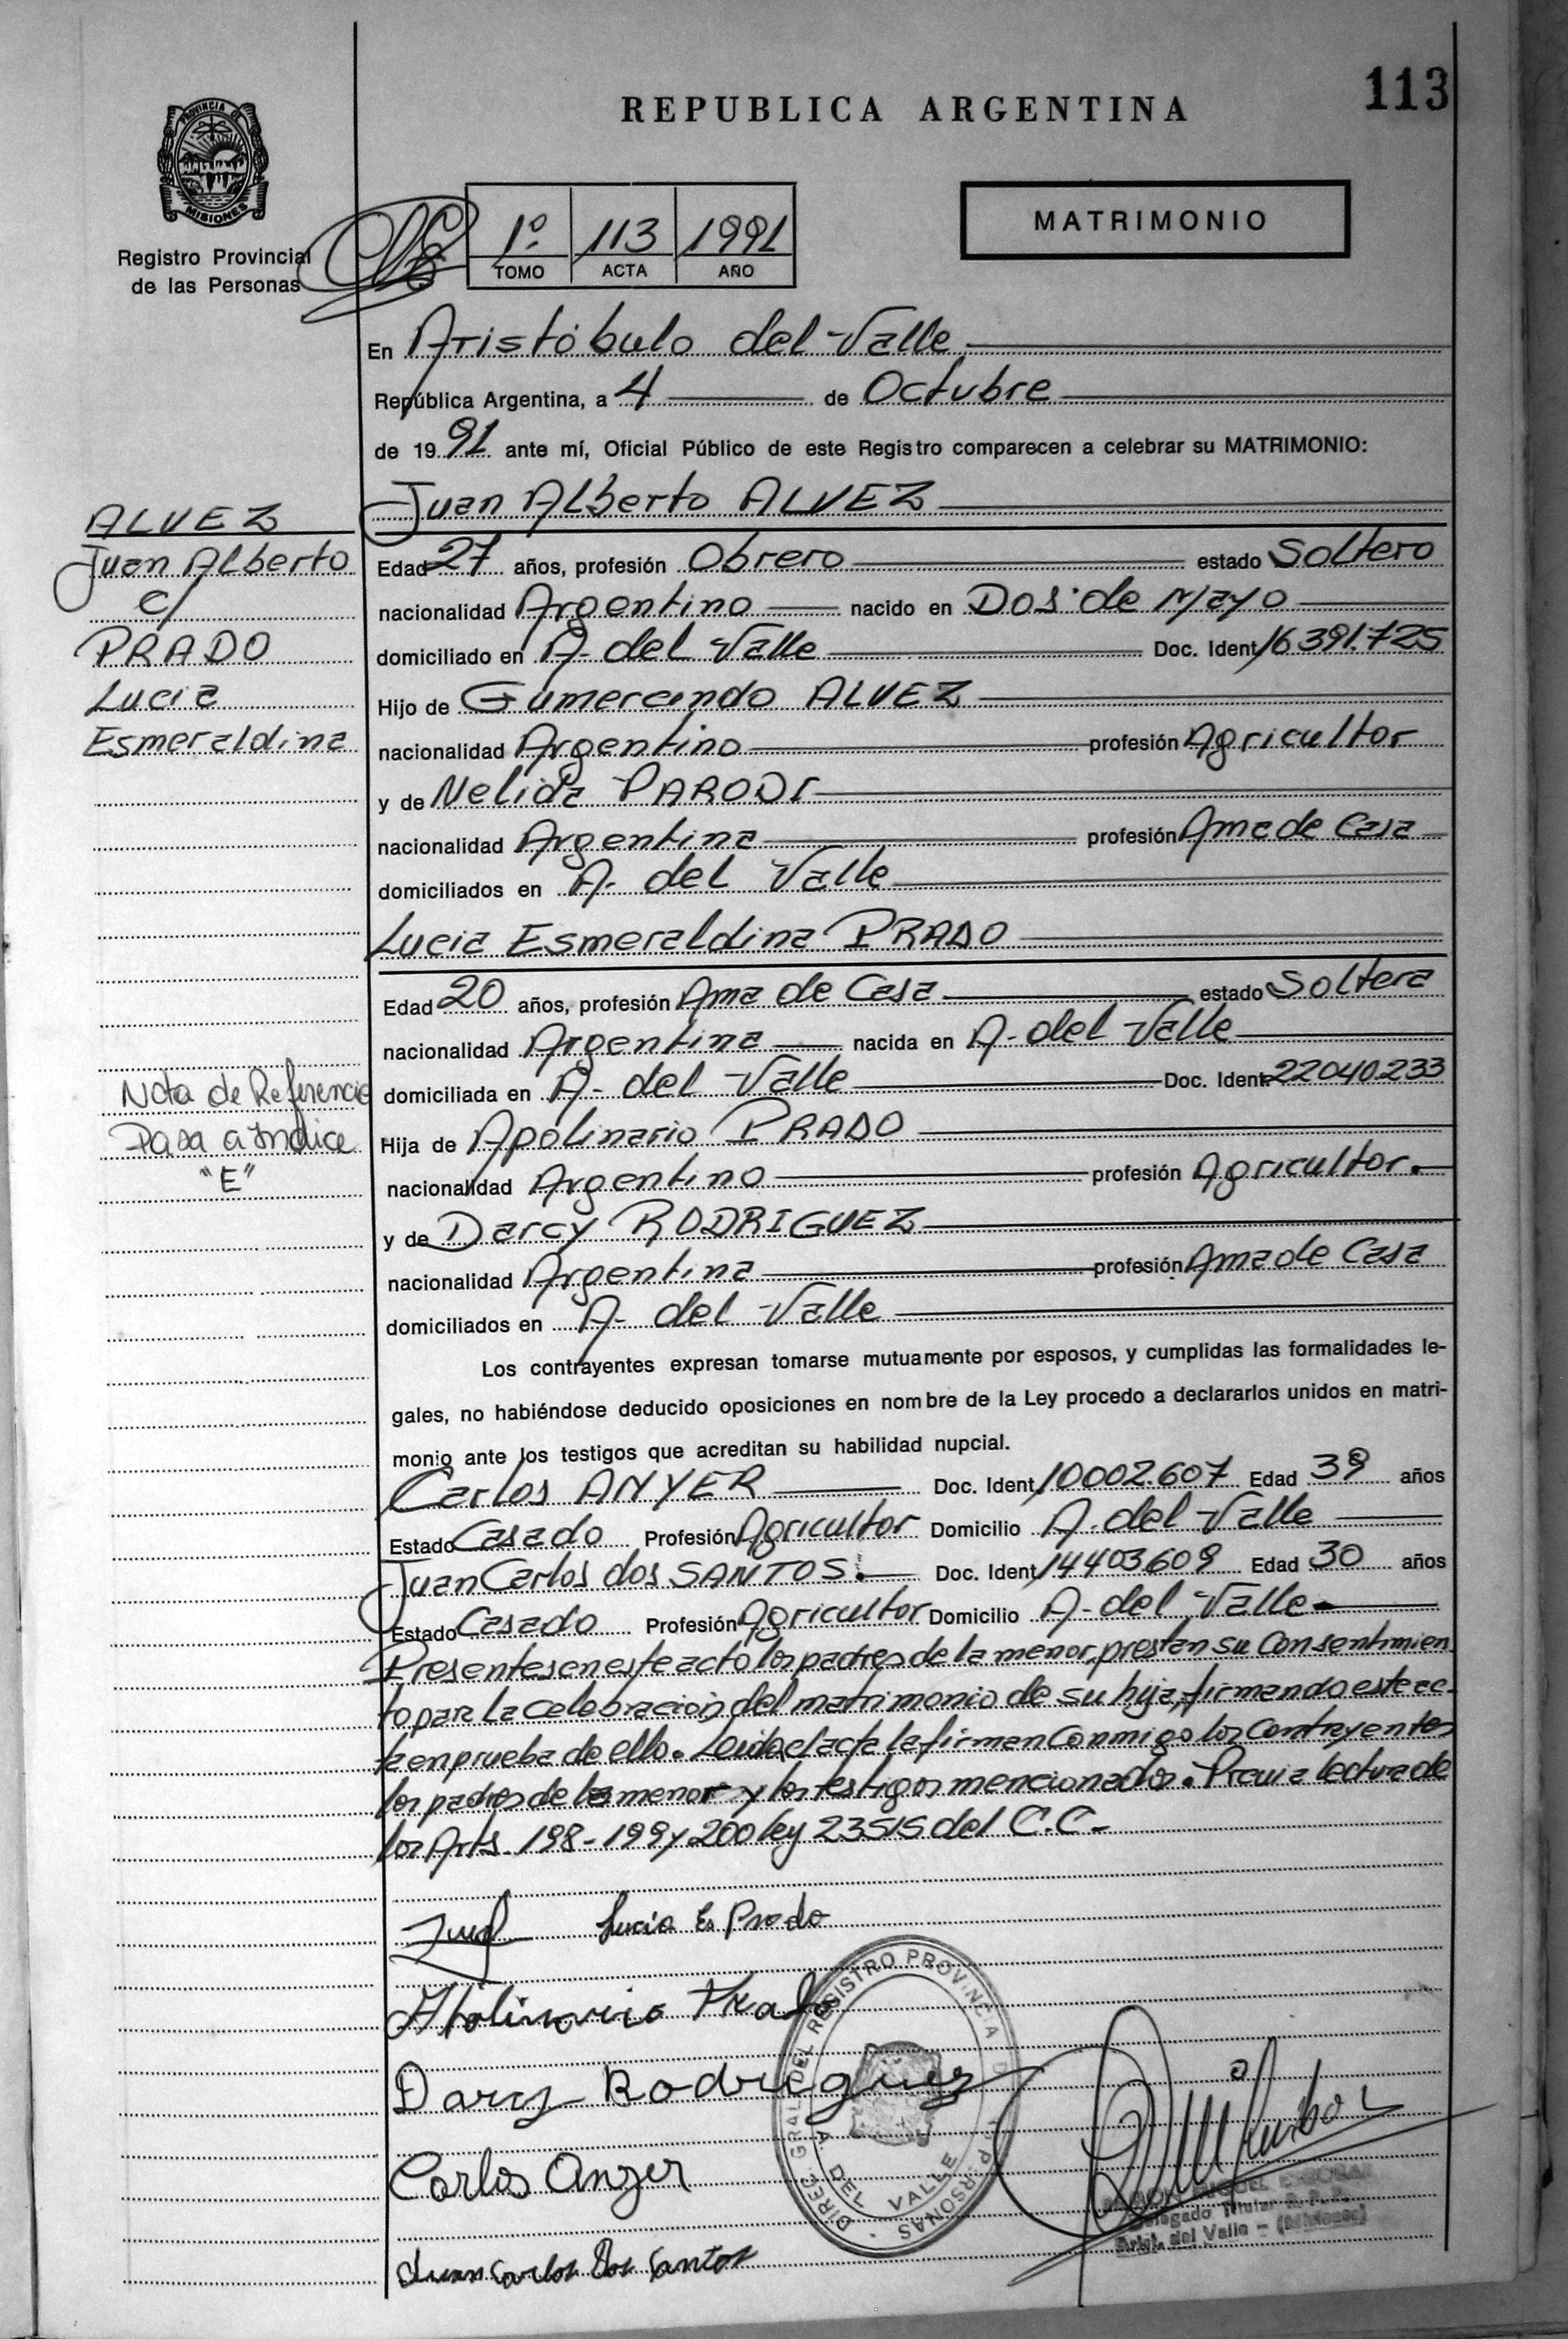 113
REPUBLICA ARGENTINA
PROVINCIA D
MISIONES
Registro Provincial
de las Personas
1º 113 1991
TOMO ACTA AÑO
MATRIMONIO
En Aristóbulo del Valle
República Argentina, a 4 de Octubre
de 1991 ante mí, Oficial Público de este Registro comparecen a celebrar su MATRIMONIO:
Juan Alberto ALVEZ
ALVEZ
Juan Alberto
c/
PRADO
Lucia
Esmeraldina
Edad 27 años, profesión Obrero estado Soltero
nacionalidad Argentino nacido en Dos de Mayo
domiciliado en A. del Valle Doc. Ident. 16391.725
Hijo de Gumercindo ALVEZ
nacionalidad Argentino profesión Agricultor
y de Nelida PARODI
nacionalidad Argentina profesión Ama de Casa
domiciliados en A. del Valle
Lucia Esmeraldina PRADO
Edad 20 años, profesión Ama de Casa estado Soltera
nacionalidad Argentina nacida en A. del Valle
domiciliada en A. del Valle Doc. Ident. 22040.233
Nota de Referencia
Pasa a Indice
"E"
Hija de Apolinario PRADO
nacionalidad Argentino profesión Agricultor.
y de Darcy RODRIGUEZ
nacionalidad Argentina profesión Ama de Casa
domiciliados en A. del Valle
Los contrayentes expresan tomarse mutuamente por esposos, y cumplidas las formalidades le-
gales, no habiéndose deducido oposiciones en nombre de la Ley procedo a declararlos unidos en matri-
monio ante los testigos que acreditan su habilidad nupcial.
Carlos ANYER Doc. Ident. 10002.607 Edad 39 años
Estado Casado Profesión Agricultor Domicilio A. del Valle
Juan Carlos dos SANTOS. Doc. Ident. 14403.609 Edad 30 años
Estado Casado Profesión Agricultor Domicilio A. del Valle
Presentes en este acto los padres de la menor, prestan su Consentimien
to para la celebración del matrimonio de su hija, firmando este ac-
ta en prueba de ello. Leida el acta la firman Conmigo los Contrayentes
los padres de la menor y los testigos mencionados. Previa lectura de
los Arts. 198-199 y 200 ley 23515 del C.C.
Lucia E. Prado
Apolinario Prado
Darcy Rodriguez
Carlos Anger
Juan Carlos Dos Santos
DIREC. GRAL. DEL REGISTRO PROVINCIAL DE LAS PERSONAS
A. DEL VALLE
RAMON MIGUEL ESCOBAR
Delegado Titular R. P. P.
Arist. del Valle - (Misiones)